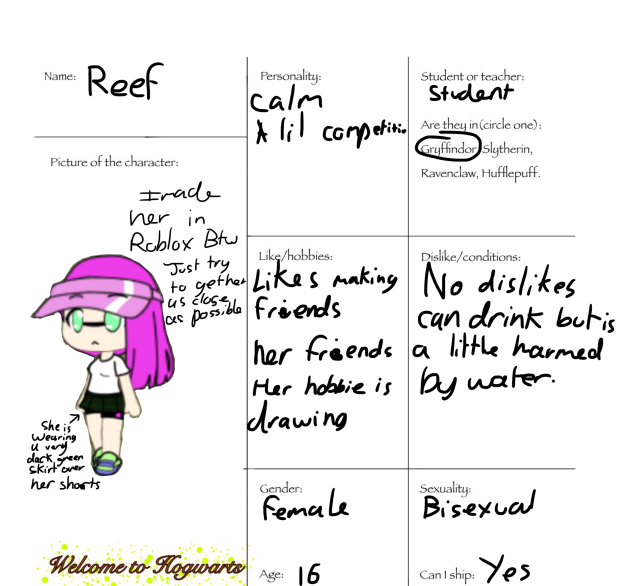 Name: Reef
Picture of the character:
I made
her in
Roblox Btw
Just try
to gether
as close
as possible
She is
wearing
a very
dark green
skirt over
her shorts
Welcome to Hogwarts
Personality:
calm
A lil competitiv
Like/hobbies:
Likes making
friends
her friends
Her hobbie is
drawing
Gender:
Female
Age: 16
Student or teacher:
Student
Are they in (circle one) :
Gryffindor, Slytherin,
Ravenclaw, Hufflepuff.
Dislike/conditions:
No dislikes
can drink but is
a little harmed
by water.
Sexuality:
Bisexual
Can I ship: Yes